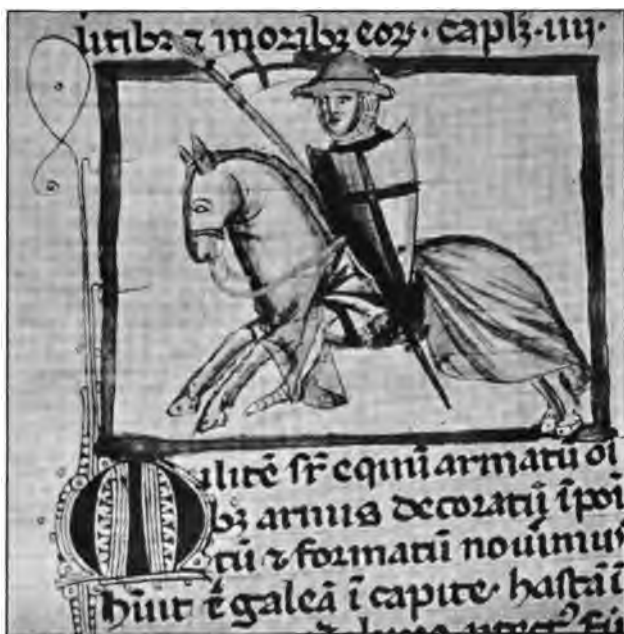 litibꝫ ⁊ moribꝫ eoꝝ · caplꝫ · iiij ·
Militē sr̄ equū armatū oī
bꝫ armis decoratū ī poı
tū ⁊ formatū nouimus
hūıt ē galeā ī capite · hastā ī